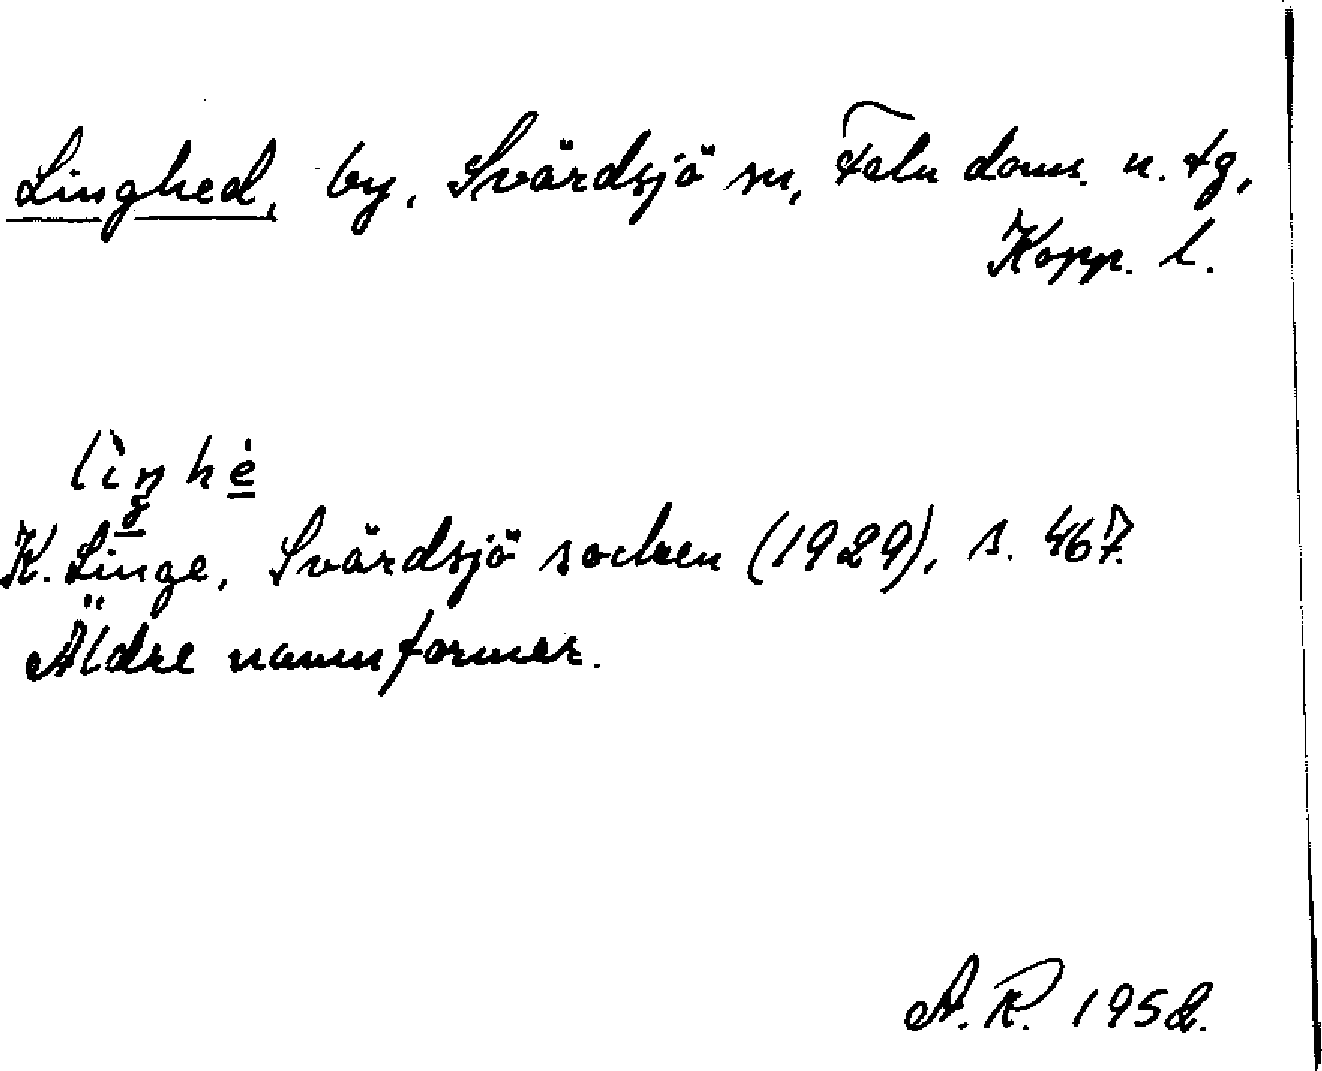 Linghed, by, Svärdsjö sn, Falu doms. n. tg,
Kopp. l.
lìŋhé
K. Linge, Svärdsjö socken (1929), s. 467.
Äldre namnformer.
A.R. 1952.